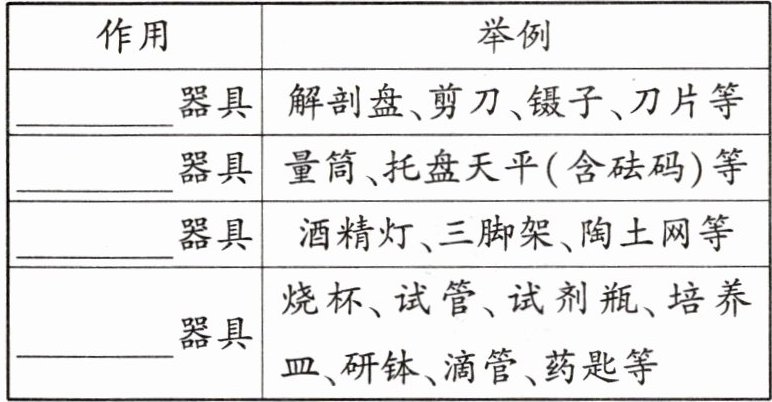 作用 举例
________器具 解剖盘、剪刀、镊子、刀片等
________器具 量筒、托盘天平(含砝码)等
________器具 酒精灯、三脚架、陶土网等
________器具 烧杯、试管、试剂瓶、培养
皿、研钵、滴管、药匙等